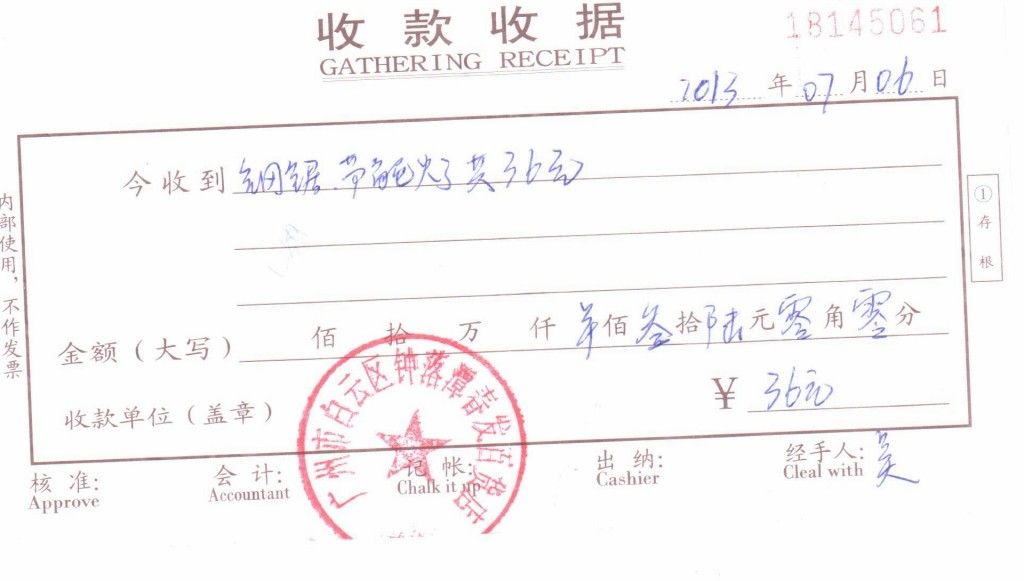 收款收据
18145061
GATHERING RECEIPT
2013 年 07 月 06 日
今收到 钢锯、 共36元
①存根
内部使用，不作发票
金额（大写） 佰 拾 万 仟 佰 叁 拾 陆 元 零 角 零 分
收款单位（盖章） ¥ 36元
广州市白云区钟落潭春发百货店
核准: 会计: 记帐: 出纳: 经手人: 吴
Approve Accountant Chalk it up Cashier Cleal with